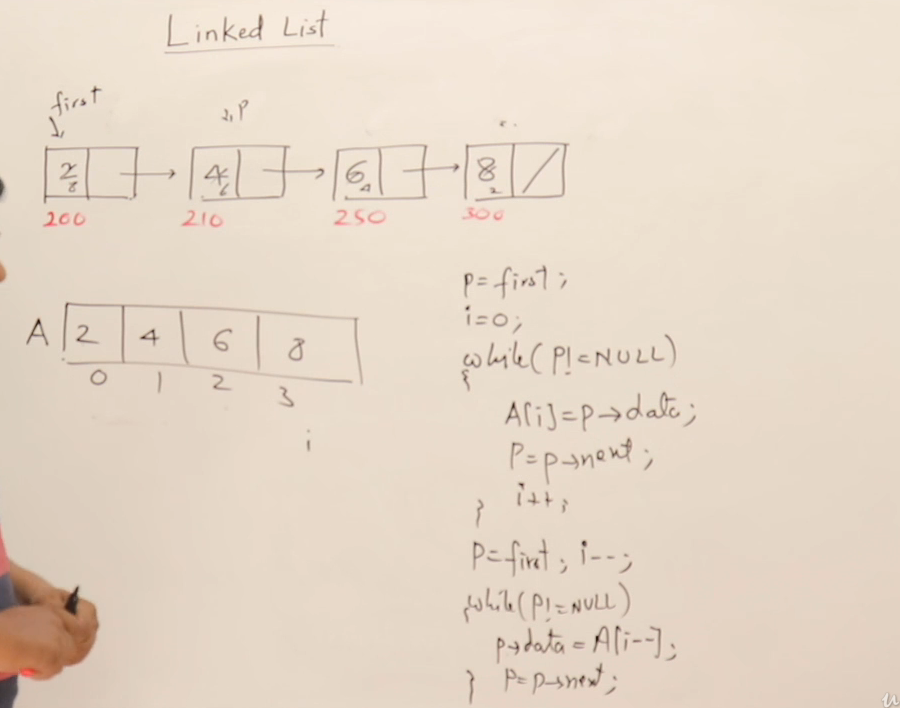 Linked List
first
P
2 4 6 8
8 6 4 2
200 210 250 300
A 2 4 6 8
0 1 2 3
i
p=first;
i=0;
while(P!=NULL)
{
A[i]=p→data;
P=p→next;
i++;
}
P=first; i--;
{while(P!=NULL)
p→data=A[i--];
} P=p→next;
u